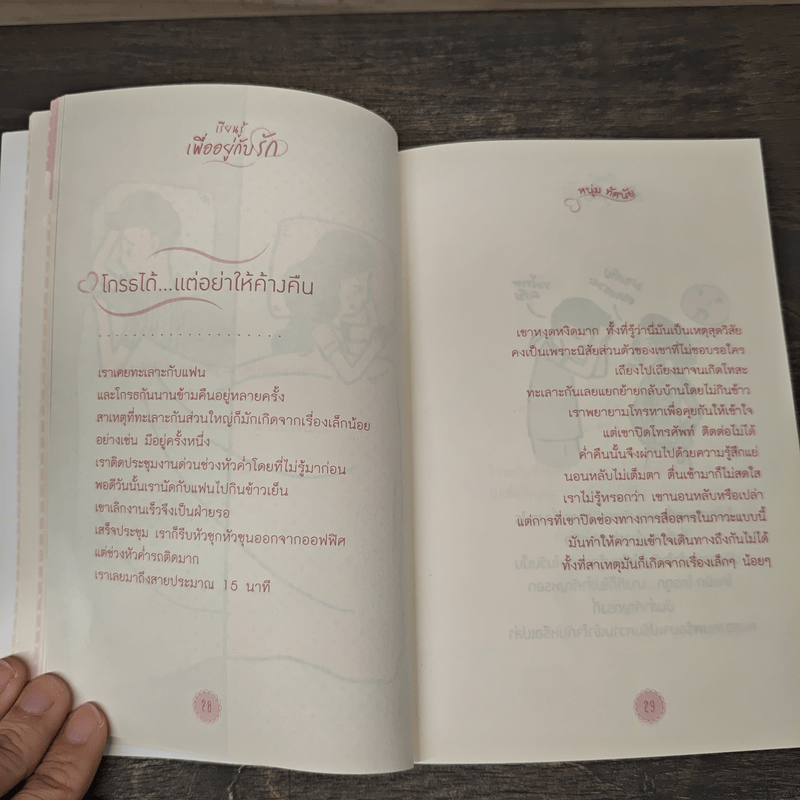 เรียนรู้
เพื่ออยู่กับรัก
โกรธได้...แต่อย่าให้ค้างคืน
เราเคยทะเลาะกับแฟน
และโกรธกันนานข้ามคืนอยู่หลายครั้ง
สาเหตุที่ทะเลาะกันส่วนใหญ่ก็มักเกิดจากเรื่องเล็กน้อย
อย่างเช่น มีอยู่ครั้งหนึ่ง
เราติดประชุมงานด่วนช่วงหัวค่ำโดยที่ไม่รู้มาก่อน
พอดีวันนั้นเรานัดกับแฟนไปกินข้าวเย็น
เขาเลิกงานเร็วจึงเป็นฝ่ายรอ
เสร็จประชุม เราก็รีบหัวซุกหัวซุนออกจากออฟฟิศ
แต่ช่วงหัวค่ำรถติดมาก
เราเลยมาถึงสายประมาณ 15 นาที
28
หนุ่ม ทัศนัย
เขาหงุดหงิดมาก ทั้งที่รู้ว่านี่มันเป็นเหตุสุดวิสัย
คงเป็นเพราะนิสัยส่วนตัวของเขาที่ไม่ชอบรอใคร
เถียงไปเถียงมาจนเกิดโทสะ
ทะเลาะกันเลยแยกย้ายกลับบ้านโดยไม่กินข้าว
เราพยายามโทรหาเพื่อคุยกันให้เข้าใจ
แต่เขาปิดโทรศัพท์ ติดต่อไม่ได้
ค่ำคืนนั้นจึงผ่านไปด้วยความรู้สึกแย่
นอนหลับไม่เต็มตา ตื่นเช้ามาก็ไม่สดใส
เราไม่รู้หรอกว่า เขานอนหลับหรือเปล่า
แต่การที่เขาปิดช่องทางการสื่อสารในภาวะแบบนี้
มันทำให้ความเข้าใจเดินทางถึงกันไม่ได้
ทั้งที่สาเหตุมันก็เกิดจากเรื่องเล็กๆ น้อยๆ
29